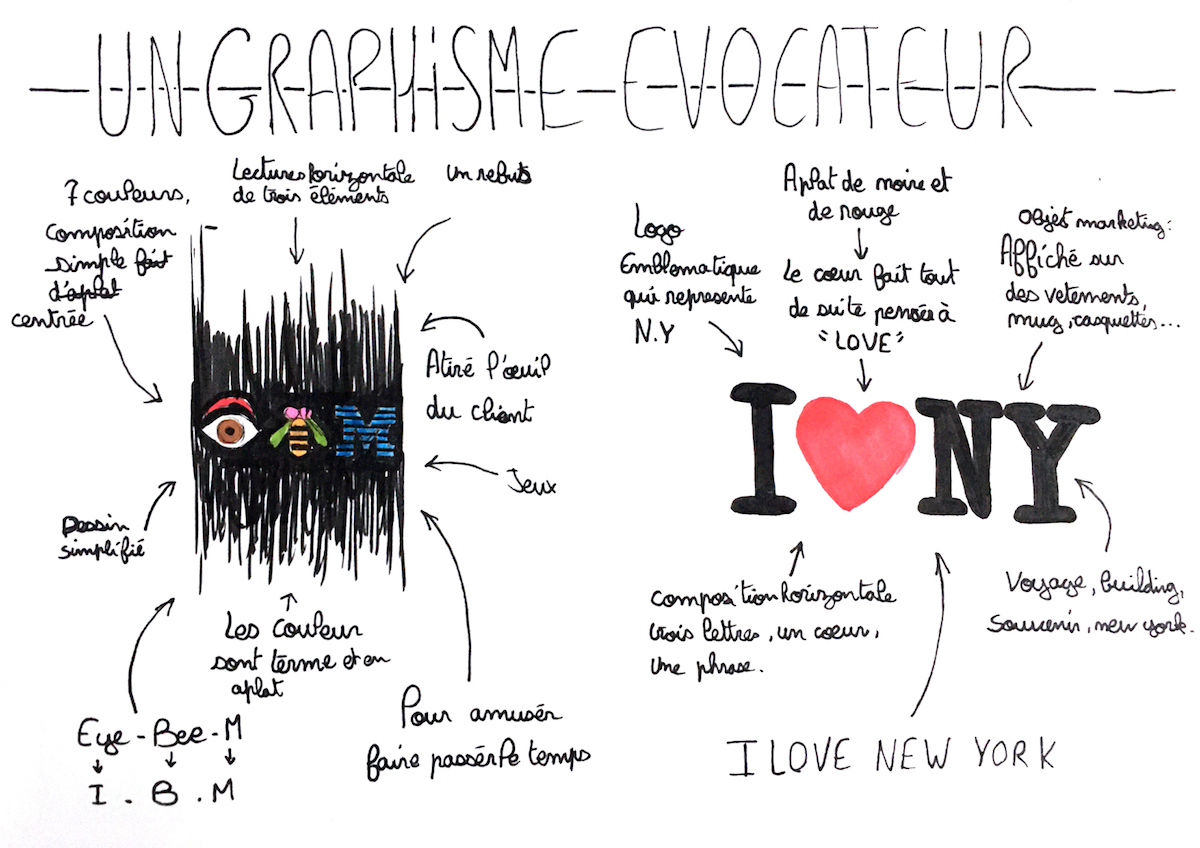 UN GRAPHISME EVOCATEUR
7 couleurs,
composition
simple fait
d'aplat
centrée
Lecture horizontale
de trois éléments
un rebuts
Atiré l'œuil
du client
Jeux
Dessin
simplifié
Les couleur
sont terme et en
aplat
Pour amusér
faire passér le temps
Eye - Bee - M
I . B . M
M
Logo
Emblematique
qui represente
N.Y
Aplat de moire et
de rouge
Le cœur fait tout
de suite pensée à
"LOVE"
Objet marketing:
Affiché sur
des vetements,
mug, casquettes...
I NY
composition horizontale
trois lettres, un coeur,
une phrase.
Voyage, building,
souvenir, new york.
I LOVE NEW YORK